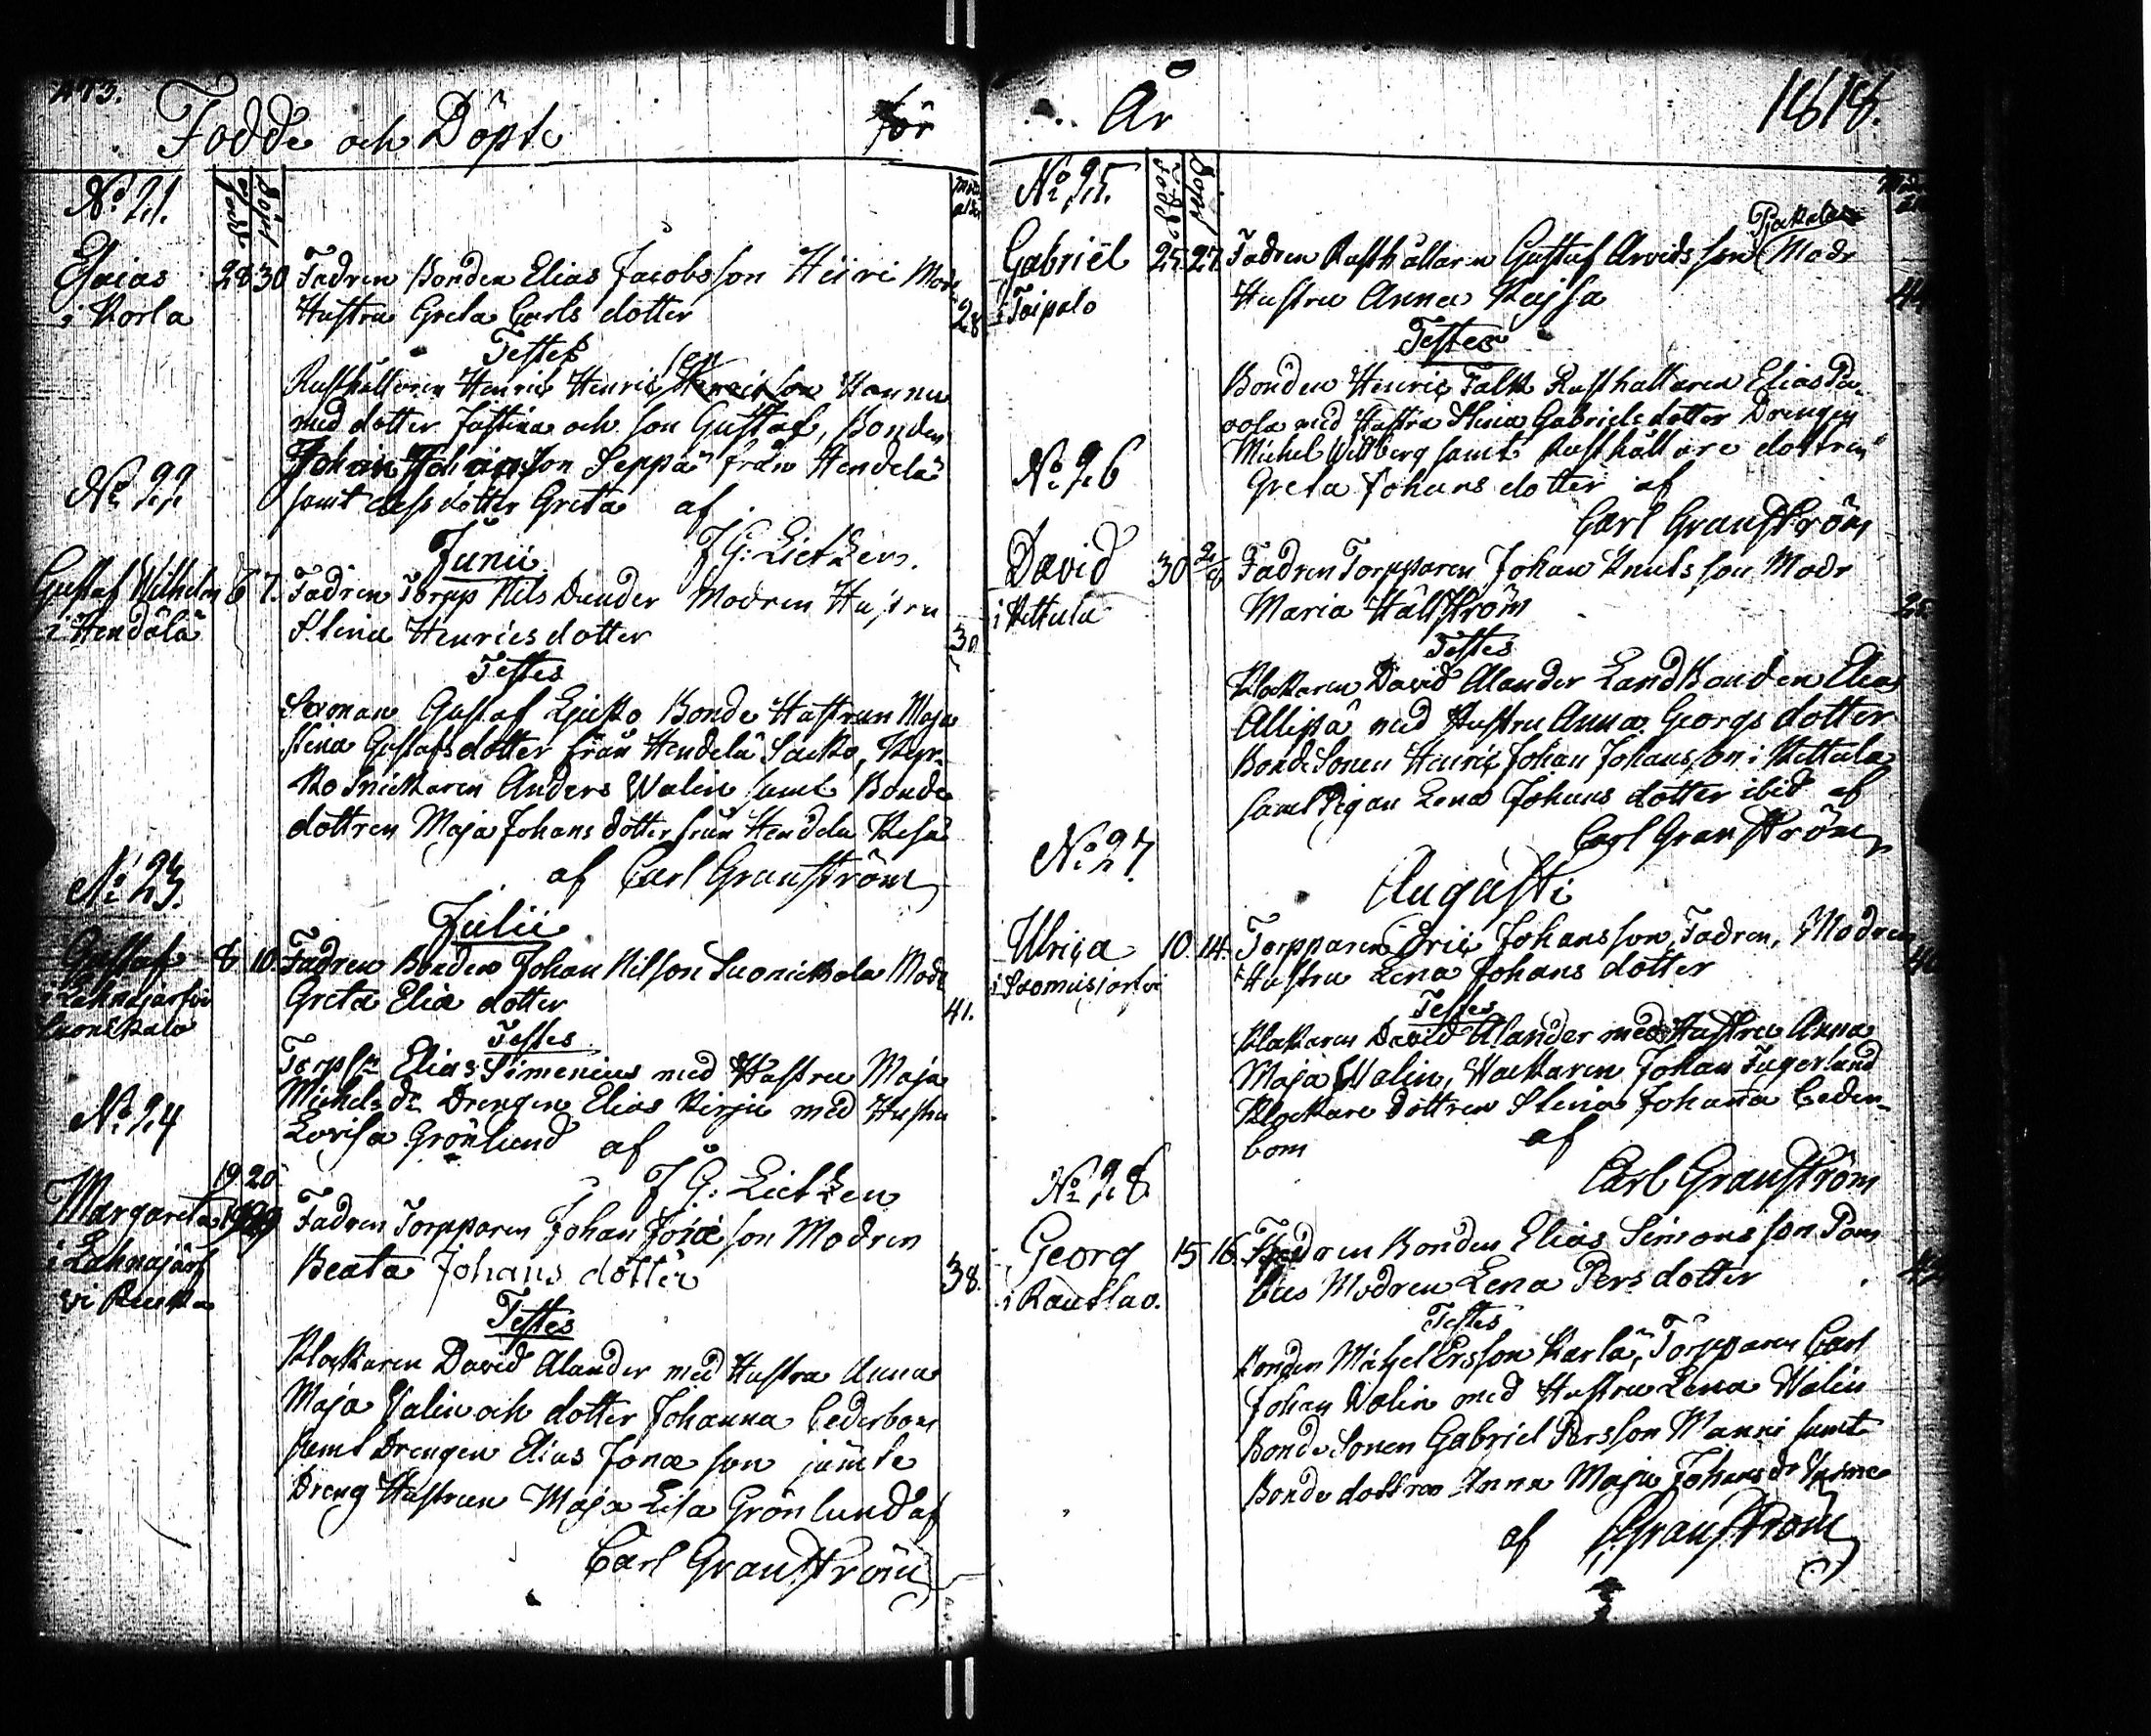 473.
Födde och Döpte för
No 21.
född döpt
Esaias 28 30 Fadren Bonden Elias Jacobsson Heiri Modr
i Korla Hustru Greta Carls dotter 28
Testes
Rusthållaren Henric Henricsson Hannu
med dotter Justina och son Gustaf, Bonden
Johan Johansson Seppä från Hendelä
samt dess dotter Greta af
J G: Lietzen.
No 22
Junii
Gustaf Wilhelm 6 7. Fadren Torpp Nils Dunder Modren Hustru
i Hendälä Stina Henrics dotter 30
Testes
Sexman Gustaf Ejusko Bonde Hustrun Maja
Stina Gustafsdotter från Hendelä Sacko, Kyr-
ko Snickaren Anders Walin samt Bonde
dottren Maja Johans dotter från Hendela
af Carl Granström
No 23.
Julii
Gustaf 8 10. Fadren Bonden Johan Nilsson Suonickala Modr
i Lahnajärfvi Greta Elia dotter 41.
Suonikala
Testes
Elias Simenius med Hustru Maja
Michels dr Drengen Elias Kirju med Hustru
Lovisa Grönlund af
J G: Lietzen
No 24
19 20
Margareta Fadren Torpparen Johan Jonæ son Modren
i Lahnajärf Beata Johans dotter 38.
vi
Testes
Klockaren David Alander med Hustru Anna
Maja Valin och dotter Johanna Cederbom
samt Drengen Elias Jonæ son jämte
Dreng Hustrun Maja Lisa Grönlund af
Carl Granström
År 1818.
No 25.
född döpt
Pjakala
Gabriel 25. 27. Fadren Rusthållaren Gustaf Arvidsson Modr
i Toipalo Hustru Anna Kajsa 44
Testes
Bonden Henric Falk Rusthållaren Elias Pa-
vola med Hustru Stina Gabriels dotter Drengen
Michel Wittberg samt Rusthållare dottren
Greta Johans dotter af
Carl Granström
No 26
David 30 2/8 Fadren Torpparen Johan Knutsson Modr
i Kettula Maria Hällström 25
Testes
Klockaren David Alander Landbonden Elias
Allipå med Hustru Anna Georgs dotter
Bonde Sonen Henric Johan Johansson i Kettula
samt Pigan Lena Johans dotter ibid af
Carl Granström
No 27.
Augusti
Ulrica 10. 14. Torpparen Eric Johansson, Fadren, Modren
i Suomusjärfvi Hustru Lena Johans dotter 40
Testes
Klockaren David Alander med Hustru Anna
Maja Walin, Wacktaren Johan Fagerlund
Klockare dottren Stina Johanna Ceder-
bom af
Carl Granström
No 28
Georg 15 16. Fadren Bonden Elias Simonsson Pom
i Rautsuo. bus Modren Lena Pers dotter 42
Testes
Bonden Michel Ersson Karla, Torpparen Carl
Johan Walin med Hustru Lena Walin
Bonde Sonen Gabriel Persson Manni samt
Bonde dottren Anna Maja Johans dr
af C Granström